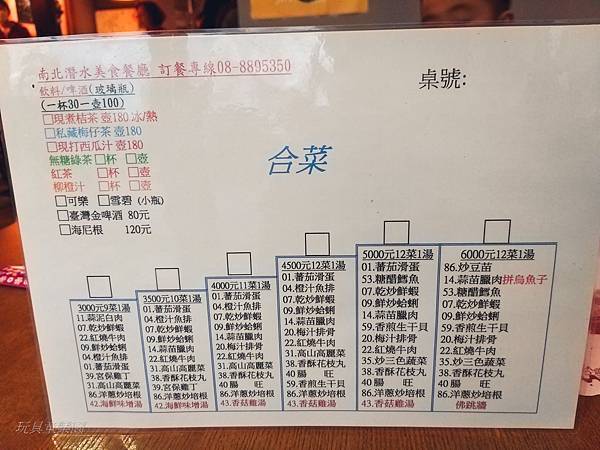 南北潛水美食餐廳 訂餐專線08-8895350
飲料/啤酒(玻璃瓶)
(一杯30一壺100)
□現煮桔茶 壺180 冰/熱
□私藏梅仔茶 壺180
□現打西瓜汁 壺180
無糖綠茶□杯 □壺
紅茶 □杯 □壺
柳橙汁 □杯 □壺
□可樂 □雪碧 (小瓶)
□臺灣金啤酒 80元
□海尼根 120元
桌號:
合菜
3000元9菜1湯
11.蒜泥白肉
07.乾炒鮮蝦
22.紅燒牛肉
09.鮮炒蛤蜊
04.橙汁魚排
01.蕃茄滑蛋
39.宮保雞丁
31.高山高麗菜
86.洋蔥炒培根
42.海鮮味增湯
3500元10菜1湯
01.蕃茄滑蛋
04.橙汁魚排
07.乾炒鮮蝦
09.鮮炒蛤蜊
14.蒜苗臘肉
22.紅燒牛肉
31.高山高麗菜
38.香酥花枝丸
39.宮保雞丁
86.洋蔥炒培根
42.海鮮味增湯
4000元11菜1湯
01.蕃茄滑蛋
04.橙汁魚排
07.乾炒鮮蝦
09.鮮炒蛤蜊
14.蒜苗臘肉
20.梅汁排骨
22.紅燒牛肉
31.高山高麗菜
38.香酥花枝丸
40.腸 旺
86.洋蔥炒培根
43.香菇雞湯
4500元12菜1湯
01.蕃茄滑蛋
04.橙汁魚排
07.乾炒鮮蝦
09.鮮炒蛤蜊
14.蒜苗臘肉
20.梅汁排骨
22.紅燒牛肉
31.高山高麗菜
38.香酥花枝丸
59.香煎生干貝
40 腸 旺
86.洋蔥炒培根
43.香菇雞湯
5000元12菜1湯
01.蕃茄滑蛋
53.糖醋鱈魚
07.乾炒鮮蝦
09.鮮炒蛤蜊
14.蒜苗臘肉
59.香煎生干貝
20.梅汁排骨
22.紅燒牛肉
35.炒三色蔬菜
38.香酥花枝丸
40 腸 旺
86.洋蔥炒培根
43.香菇雞湯
6000元12菜1湯
86.炒豆苗
14.蒜苗臘肉拼烏魚子
53.糖醋鱈魚
07.乾炒鮮蝦
09.鮮炒蛤蜊
59.香煎生干貝
20.梅汁排骨
22.紅燒牛肉
35.炒三色蔬菜
38.香酥花枝丸
40 腸 旺
86.洋蔥炒培根
佛跳牆